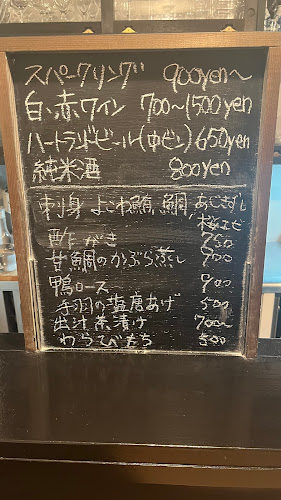 スパークリング 900yen〜
白、赤ワイン 700〜1500yen
ハートランドビール(中ビン)650yen
純米酒 800yen
刺身 よこわ鮪、鯛、あじきずし
桜エビ
酢がき 750
甘鯛のかぶら蒸し 900
鴨ロース 900
手羽の塩唐あげ 500
出汁茶漬け 700〜
わらびもち 500